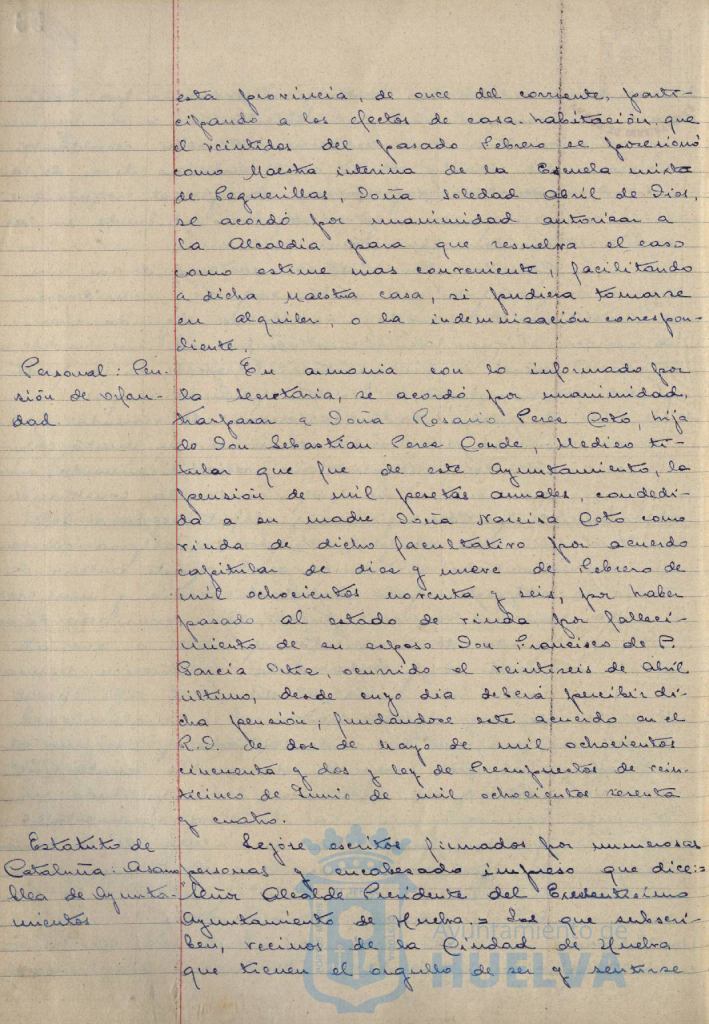 esta provincia, de once del corriente, parti-
cipando a los efectos de casa-habitación, que
el veintidos del pasado Febrero se posesionó
como Maestra interina de la Escuela mixta
de Peguerillas, Doña Soledad Abril de Dios,
se acordó por unanimidad autorizar a
la Alcaldia para que resuelva el caso
como estime mas conveniente, facilitando
a dicha Maestra casa, si pudiera tomarse
en alquiler, o la indemnización correspon-
diente.
Personal: Pen-
sión de orfan-
dad.
En armonia con lo informado por
la Secretaria, se acordó por unanimidad,
traspasar a Doña Rosario Perez Coto, hija
de Don Sebastian Perez Conde, Medico ti-
tular que fue de este Ayuntamiento, la
pensión de mil pesetas anuales, condedi-
da a su madre Doña Narcisa Coto como
viuda de dicho facultativo por acuerdo
capitular de diez y nueve de Febrero de
mil ochocientos noventa y seis, por haber
pasado al estado de viuda por falleci-
miento de su esposo Don Francisco de P.
Garcia Ortiz, ocurrido el veintiseis de Abril
último, desde cuyo dia deberá percibir di-
cha pensión, fundandose este acuerdo en el
R.D. de dos de Mayo de mil ochocientos
cincuenta y dos y ley de Presupuestos de vein-
ticinco de Junio de mil ochocientos sesenta
y cuatro.
Estatuto de
Cataluña: Asam
blea de Ayunta-
mientos
Leyóse escritos firmados por numerosas
personas y encabezado impreso que dice:=
Señor Alcalde Presidente del Excelentisimo
Ayuntamiento de Huelva.= Los que subscri-
ben, vecinos de la Ciudad de Huelva
que tienen el orgullo de ser y sentirse
Ayuntamiento de
HUELVA